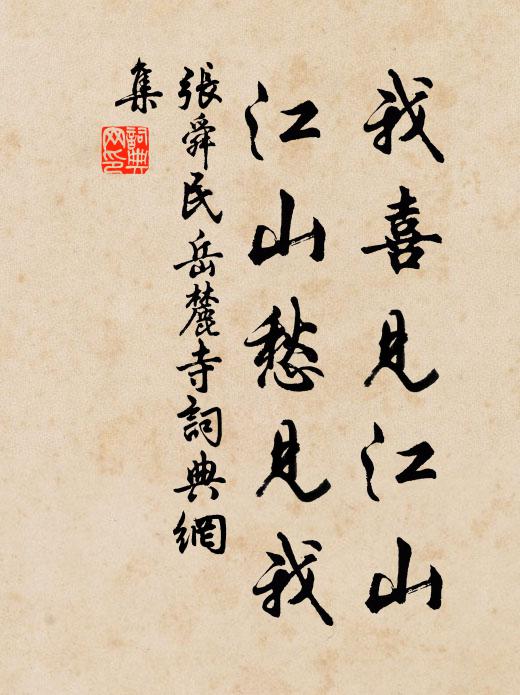 我喜見江山
江山愁見我
張舜民岳麓寺詞典網
集
詞典
网印